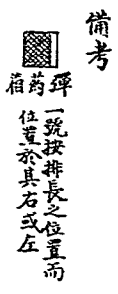 備考
彈药箱
一號按排長之位置而
位置於其右或左